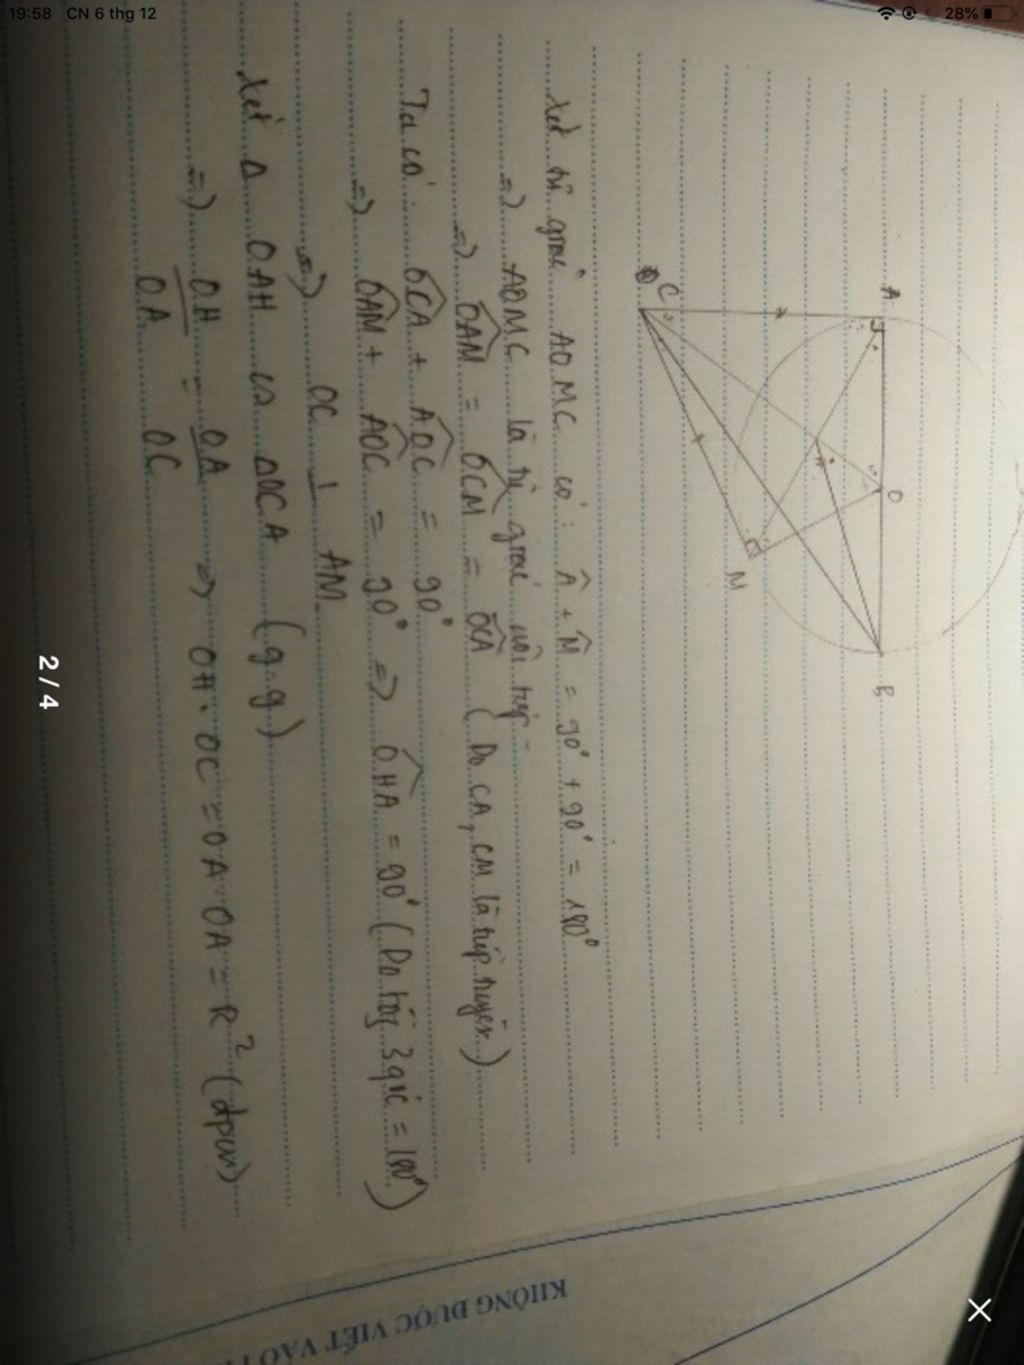 19:58 CN 6 thg 12
28%
A
O
B
C
H
M
Xét tứ giác AOMC có: Â + M̂ = 90° + 90° = 180°
=> AOMC là tứ giác nội tiếp.
=> OAM = OCM = OCA (Do CA, CM là tiếp tuyến)
Ta có: OCA + AOC = 90°
=> OAM + AOC = 90° => OHA = 90° (Do tổng 3 góc = 180°)
=> OC ⊥ AM
Xét Δ OAH ∽ ΔOCA (g.g)
=> OH/OA = OA/OC => OH.OC = OA.OA = R² (đpcm)
KHÔNG ĐƯỢC VIẾT VÀO
2 / 4